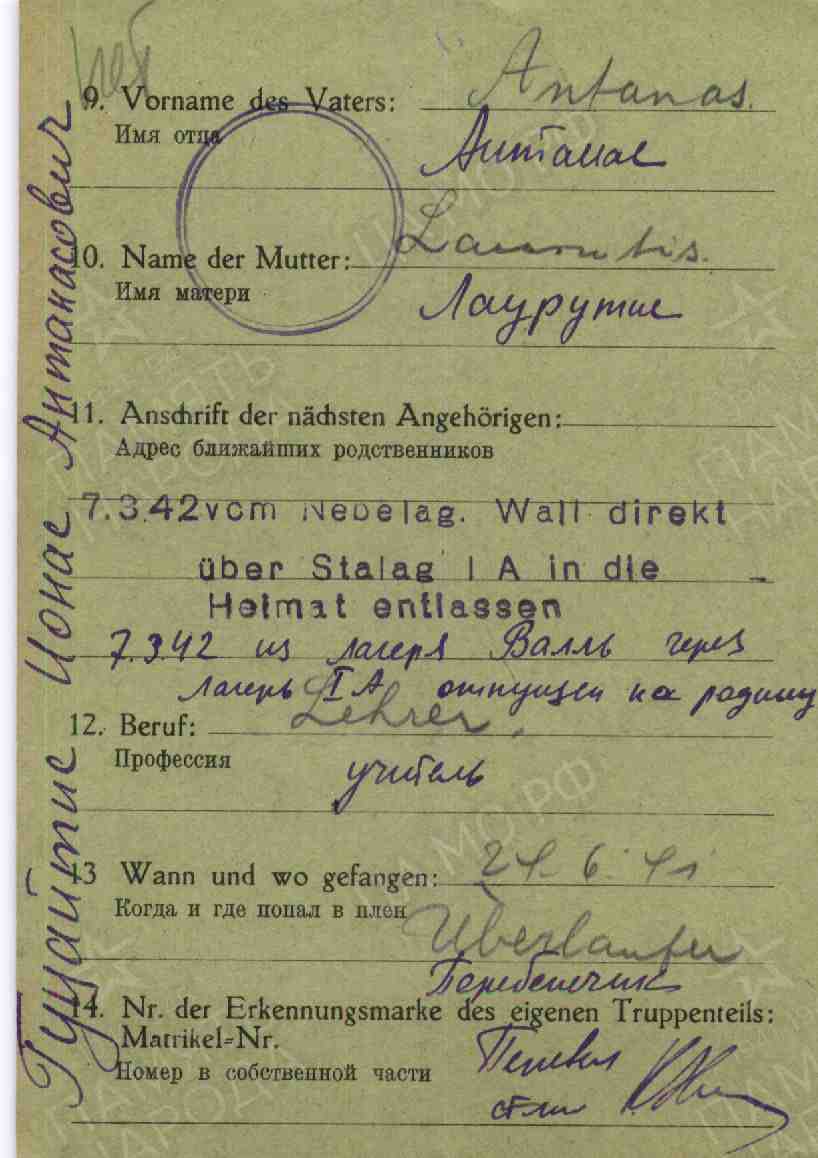 9. Vorname des Vaters: Antanas.
Имя отца
Антанас
10. Name der Mutter:
Имя матери
Лаурутис
11. Anschrift der nächsten Angehörigen:
Адрес ближайших родственников
7.3.42 vom Nebelag. Wall direkt
über Stalag I A in die
Heimat entlassen
7.3.42 из лагеря Валль через
лагерь I A отпущен на родину
12. Beruf: Lehrer.
Профессия
учитель
13 Wann und wo gefangen: 24.6.41
Когда и где попал в плен
Überlaufer
Перебежчик
14. Nr. der Erkennungsmarke des eigenen Truppenteils:
Matrikel-Nr.
Номер в собственной части
Ионас Антанасович